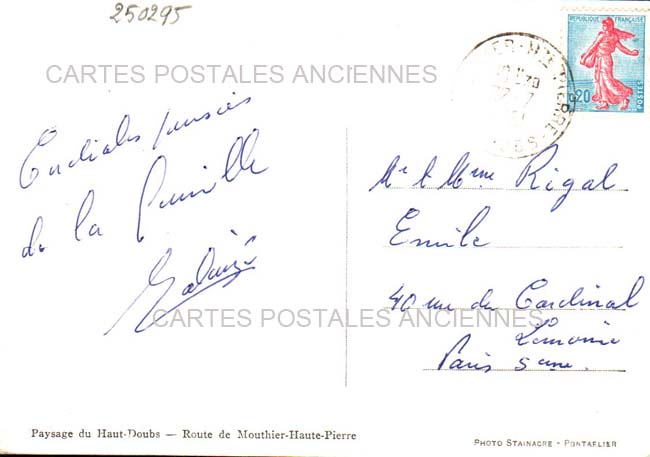 250295
REPUBLIQUE FRANÇAISE
0,20
POSTES
CARTES POSTALES ANCIENNES
Cordiales pensées
de la famille
Mr & Mme Rigal
Emile
40 rue du Cardinal
Lemoine
Paris 5eme
CARTES POSTALES ANCIENNES
Paysage du Haut-Doubs — Route de Mouthier-Haute-Pierre
PHOTO STAINACRE - PONTARLIER